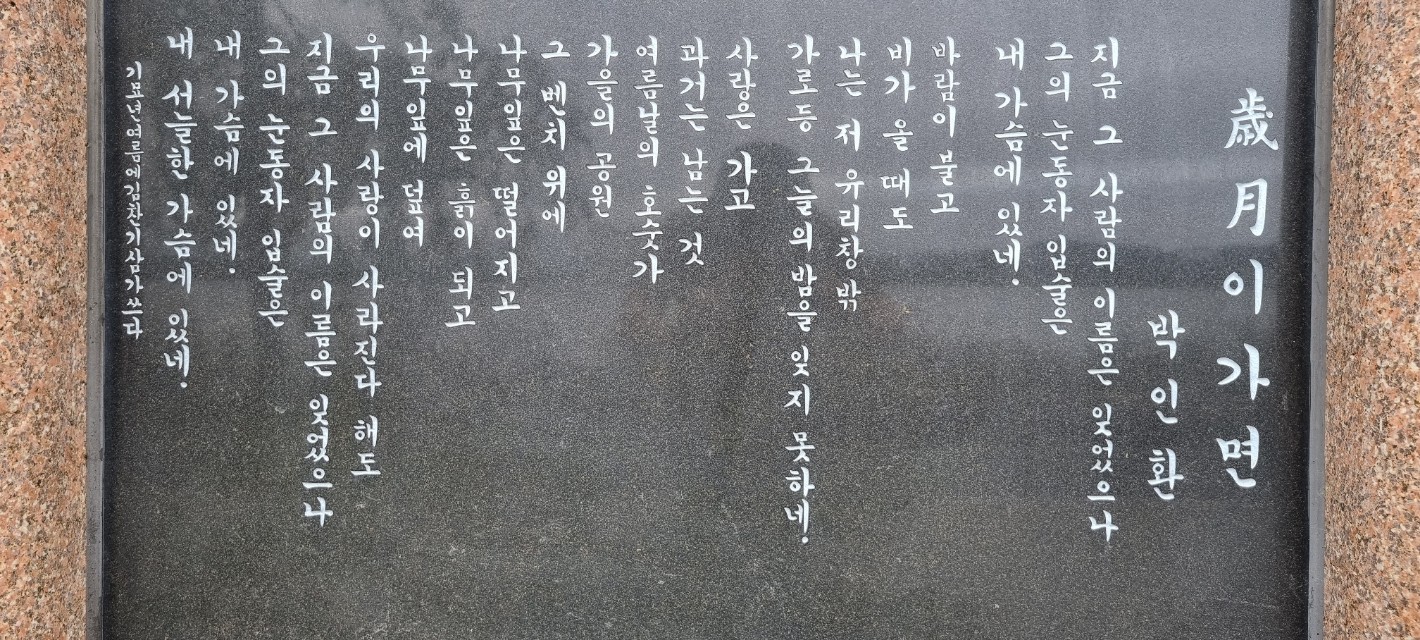 歲月이 가면
박인환
지금 그 사람의 이름은 잊었으나
그의 눈동자 입술은
내 가슴에 있네.
바람이 불고
비가 올 때도
나는 저 유리창 밖
가로등 그늘의 밤을 잊지 못하네.
사랑은 가고
과거는 남는 것
여름날의 호숫가
가을의 공원
그 벤치 위에
나무잎은 떨어지고
나무잎은 흙이 되고
나무잎에 덮여
우리의 사랑이 사라진다 해도
지금 그 사람의 이름은 잊었으나
그의 눈동자 입술은
내 가슴에 있네.
내 서늘한 가슴에 있네.
기묘년여름에김찬기삼가쓰다